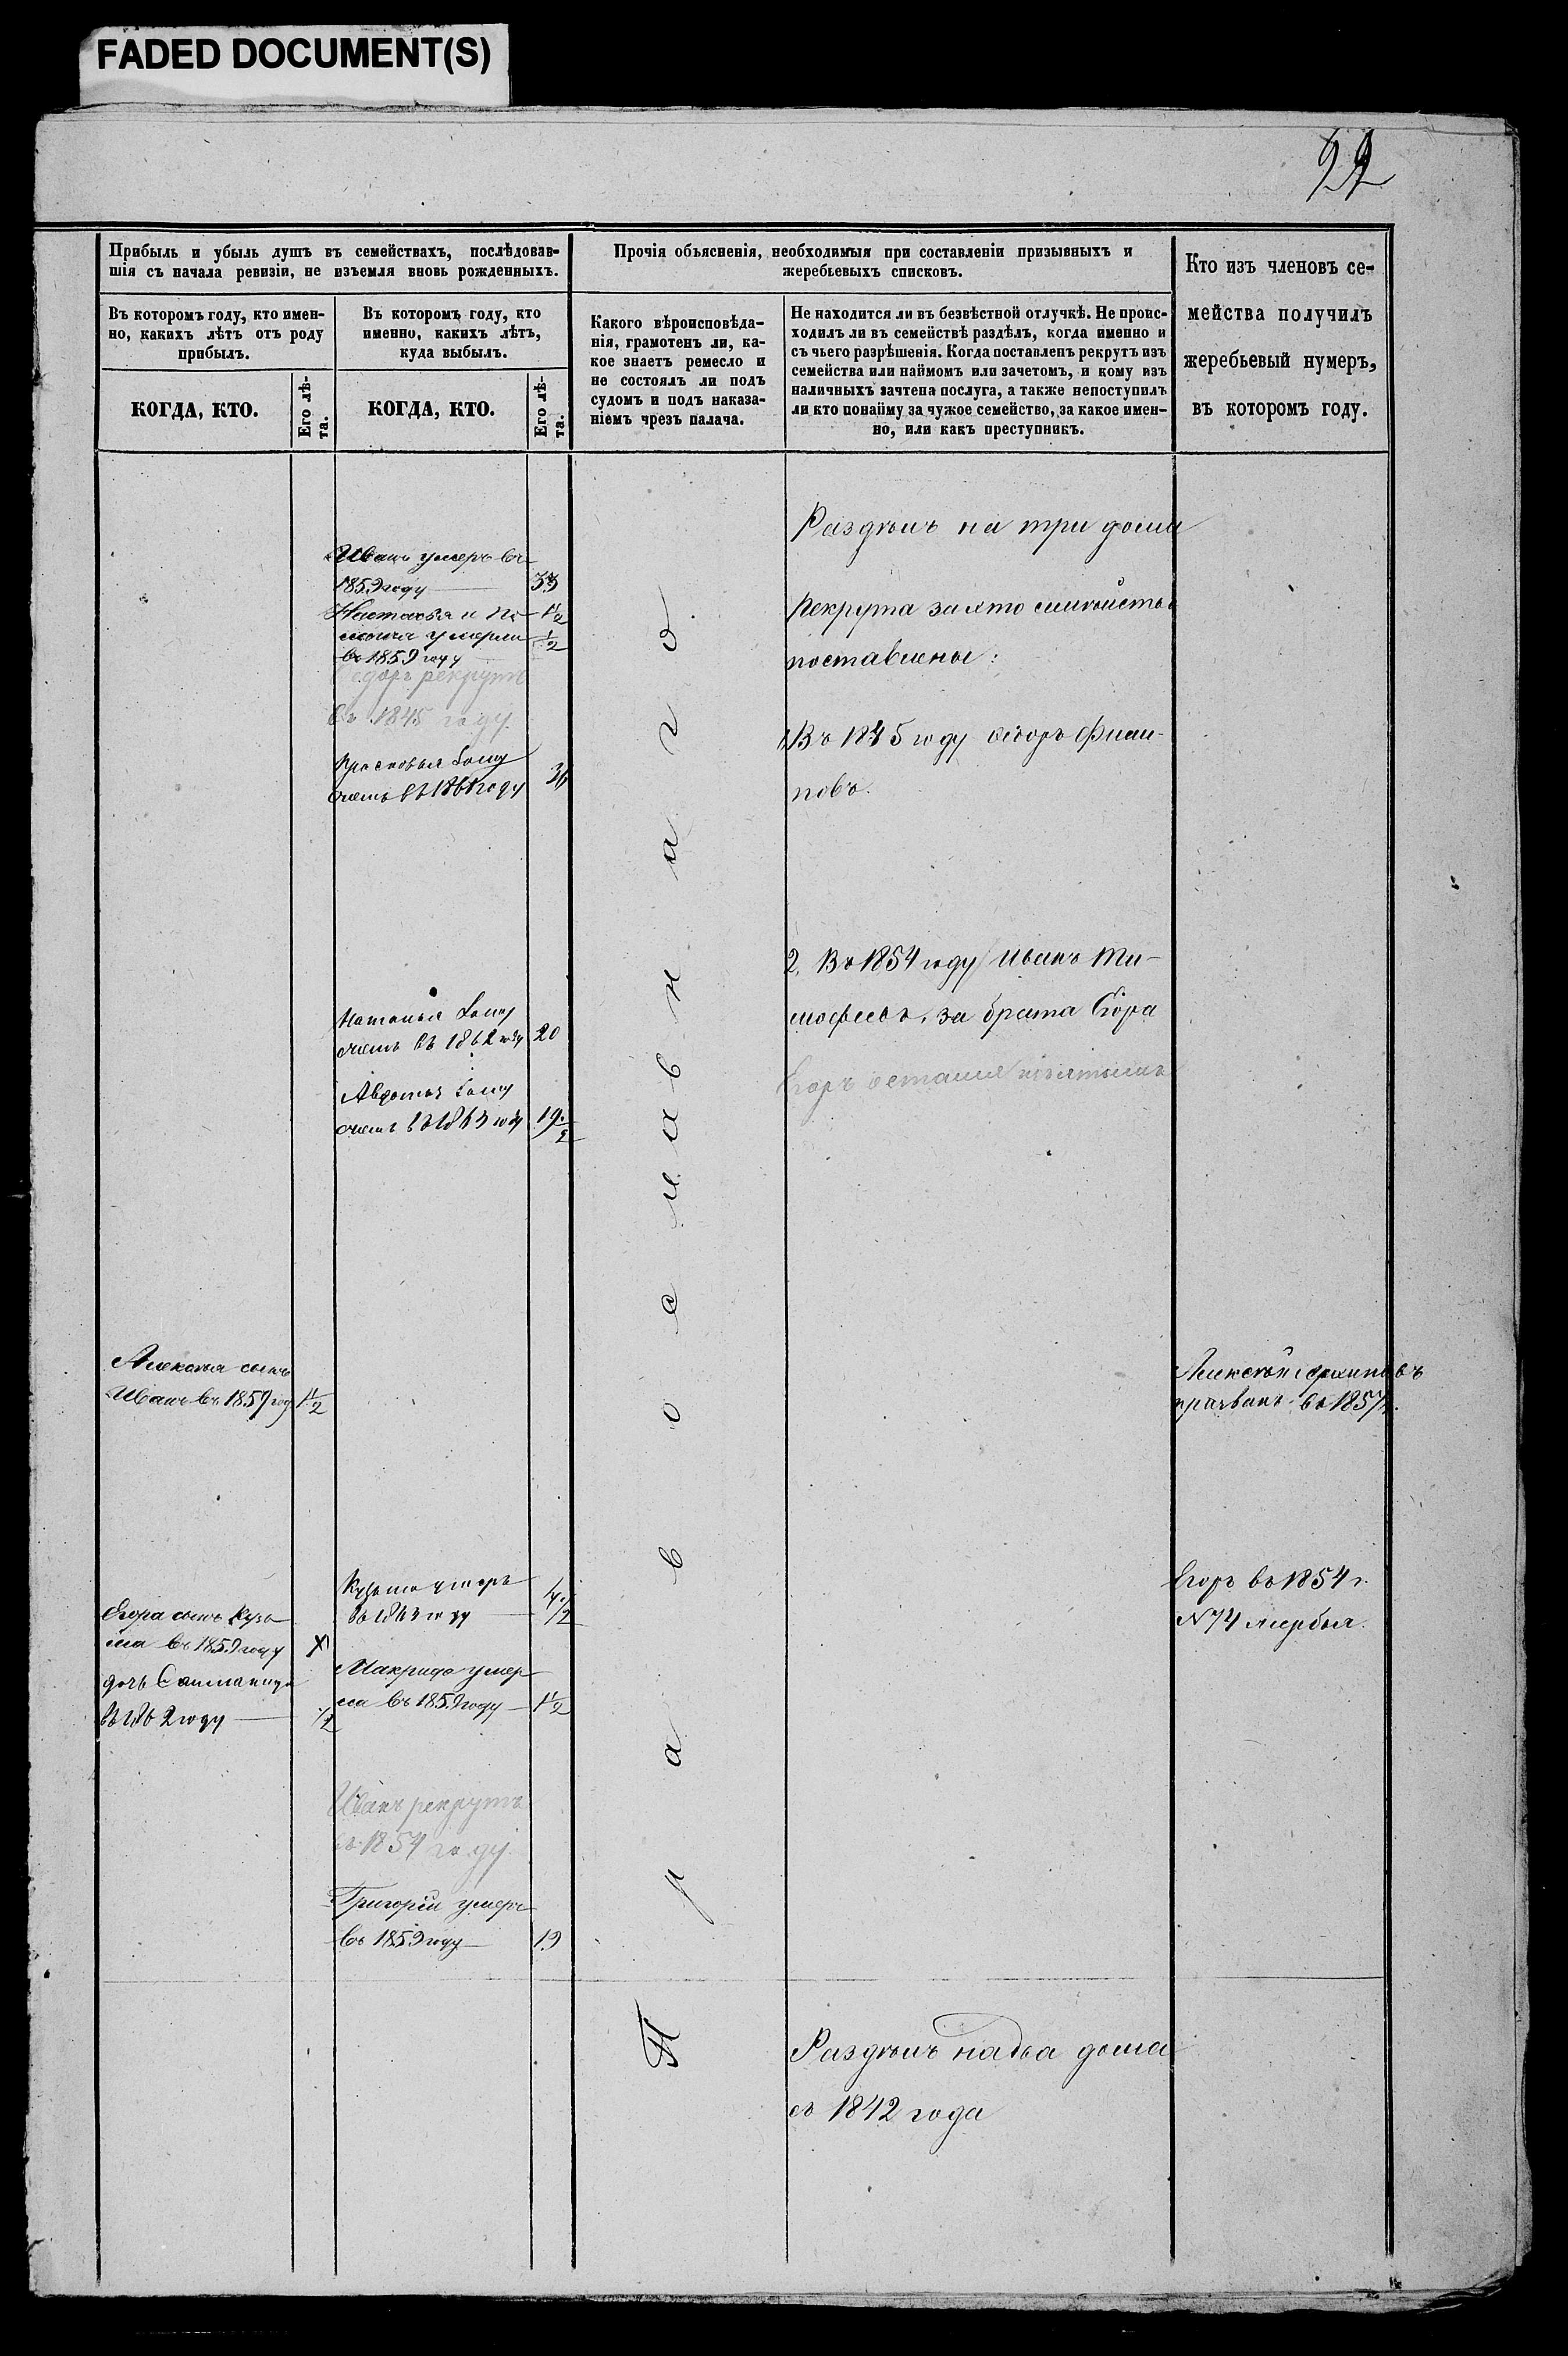 FADED DOCUMENT(S)
Прибыль и убыль душъ въ семействахъ, послѣдовав-
шія съ начала ревизіи, не изъемля вновь рожденныхъ.
Въ которомъ году, кто имен-
но, какихъ лѣтъ отъ роду
прибылъ.
КОГДА, КТО.
Его лѣ-
та.
Въ которомъ году, кто
именно, какихъ лѣтъ,
куда выбылъ.
КОГДА, КТО.
Его лѣ-
та.
Прочія объясненія, необходимыя при составленіи призывныхъ и
жеребьевыхъ списковъ.
Какого вѣроисповѣда-
нія, грамотенъ ли, ка-
кое знаетъ ремесло и
не состоялъ ли подъ
судомъ и подъ наказа-
ніемъ чрезъ палача.
Не находится ли въ безвѣстной отлучкѣ. Не проис-
ходилъ ли въ семействѣ раздѣлъ, когда именно и
съ чьего разрѣшенія. Когда поставленъ рекрутъ изъ
семейства или наймомъ или зачетомъ, и кому изъ
наличныхъ зачтена послуга, а также непоступилъ
ли кто понайму за чужое семейство, за какое имен-
но, или какъ преступникъ.
Кто изъ членовъ се-
мейства получилъ
жеребьевый нумеръ,
въ которомъ году.
Алексѣя сынъ
Иванъ въ 1859 год 1 1/2
Егора сынъ Кузь
ма въ 1859 году
дочь
въ 1862 году 1/2
Иванъ умеръ въ
1859 году 33
Настасья и
умерли 1/2
въ 1859 году
Ѳедоръ рекрутъ
въ 1845 году
Прасковья замуж
въ 1861 году
Наталья замуж
въ 1862 году 20
Авдотья замуж
въ 1863 году 19
Кузьма умеръ
въ 1863 году 4 1/2
Макрида умер
ла въ 1859 году 1 1/2
Иванъ рекрутъ
въ 1854 году
Григорій умеръ
въ 1859 году 19
Православнаго
Раздѣлъ на три дома
Рекрута за это семейство
поставлены:
1, Въ 1845 году Ѳедоръ Филип-
повъ.
2, Въ 1854 году Иванъ Ти-
мофеевъ, за брата Егора
Егоръ остался
Раздѣлъ на два дома
съ 1842 года
Алексѣй
въ 1857 г.
Егоръ въ 1854 г.
N 74